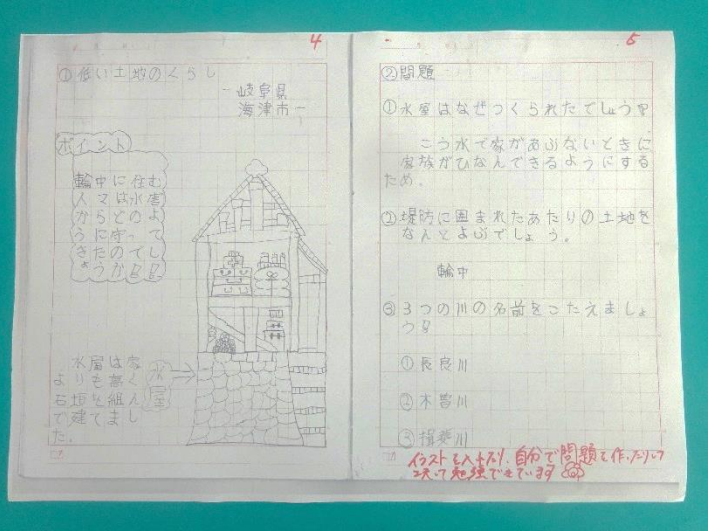 4
①低い土地のくらし
~岐阜県
海津市~
ポイント
輪中に住む
人々は水害
からどのよ
うに守って
きたのでし
ょうか
水屋は家
よりも高く
石垣を組ん
で建てまし
た。
水屋
5
②問題
①水屋はなぜつくられたでしょう
こう水で家があぶないときに
家族がひなんできるようにする
ため。
②堤防に囲まれたあたりの土地を
なんとよぶでしょう。
輪中
③3つの川の名前をこたえましょ
う
①長良川
②木曽川
③揖斐川
イラストを入れたり、自分で問題を作ったりして
勉強できています